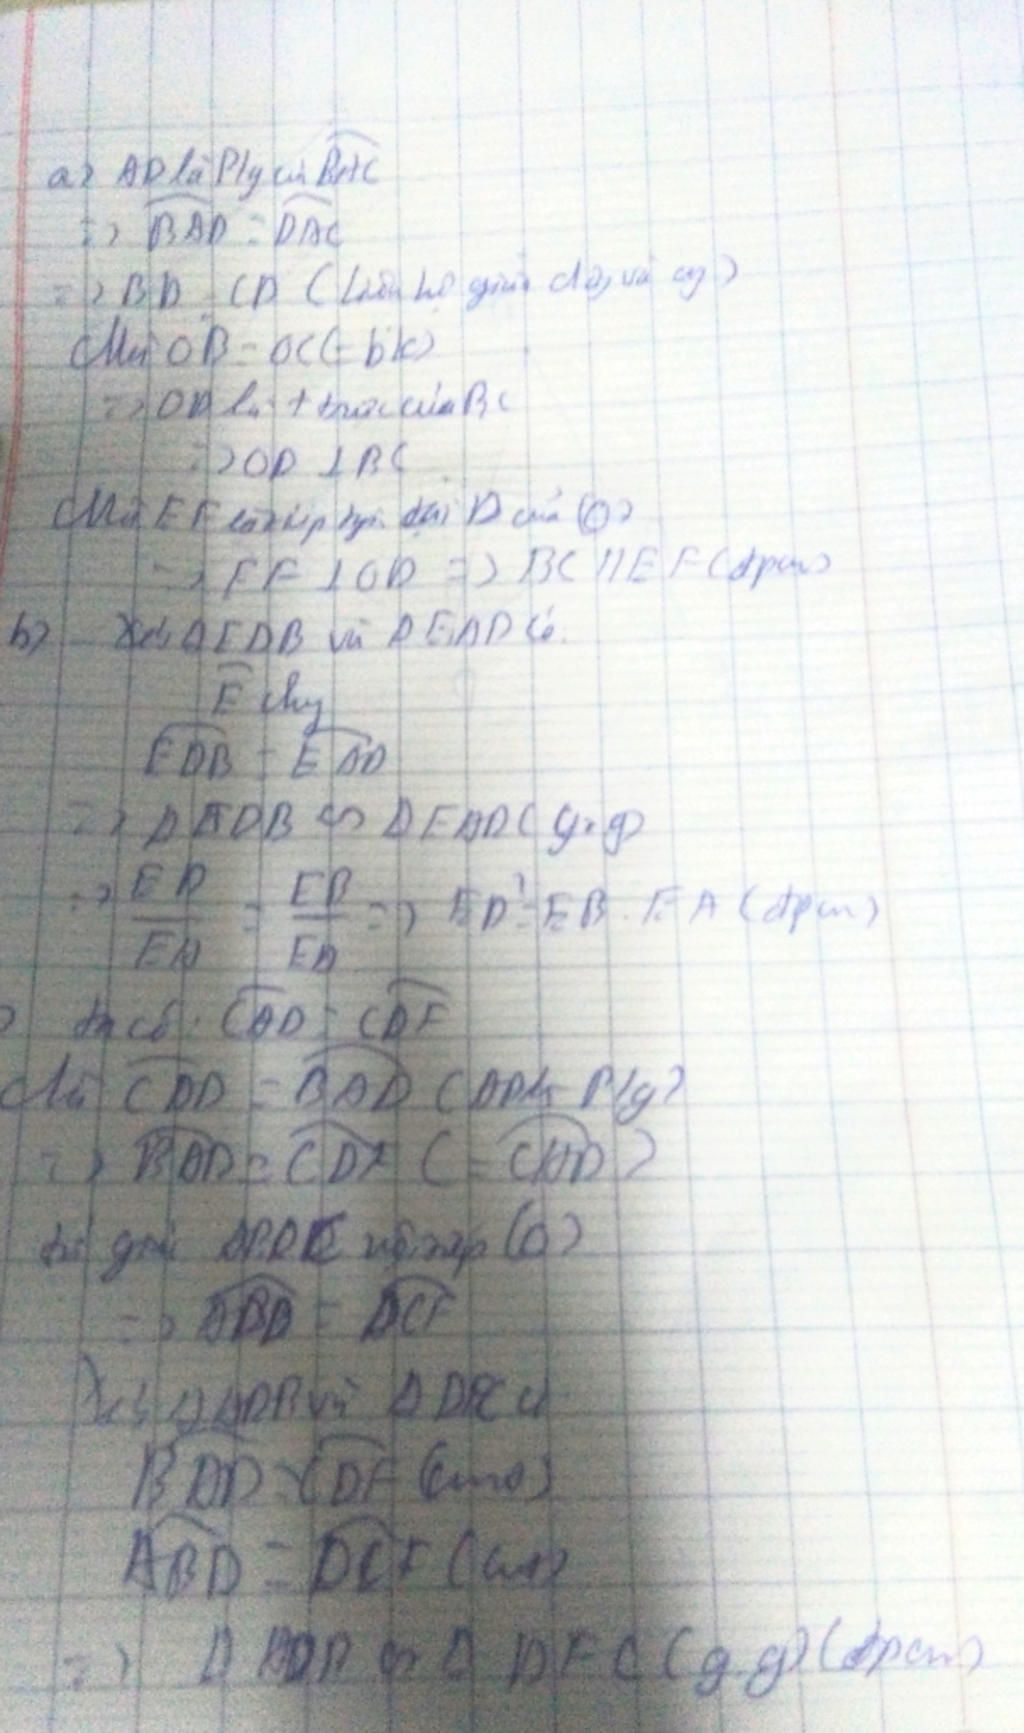 a) AD là P/g của BAC
=> BAD = DAC
=> BD = CD (liên hệ giữa dây và cg)
Mà OB = OC (= bk)
=> OD là t trực của BC
=> OD ⊥ BC
Mà EF là tiếp tyến tại D của (O)
=> EF ⊥ OD => BC // EF (đpcm)
b) Xét Δ EDB và Δ EAD có
E chg
EDB = EAD
=> Δ EDB ∽ Δ EAD (g.g)
=> ED/EA = EB/ED => ED² = EB . EA (đpcm)
ta có: CAD = CDF
Mà CAD = BAD (AD là P/g)
=> BAD = CDF (= CAD)
tứ giác ABDC nội tiếp (O)
=> ABD = DCF
Xét Δ ADB và Δ DFC có
BAD = CDF (cmt)
ABD = DCF (cmt)
=> Δ ABD ∽ Δ DFC (g.g) (đpcm)